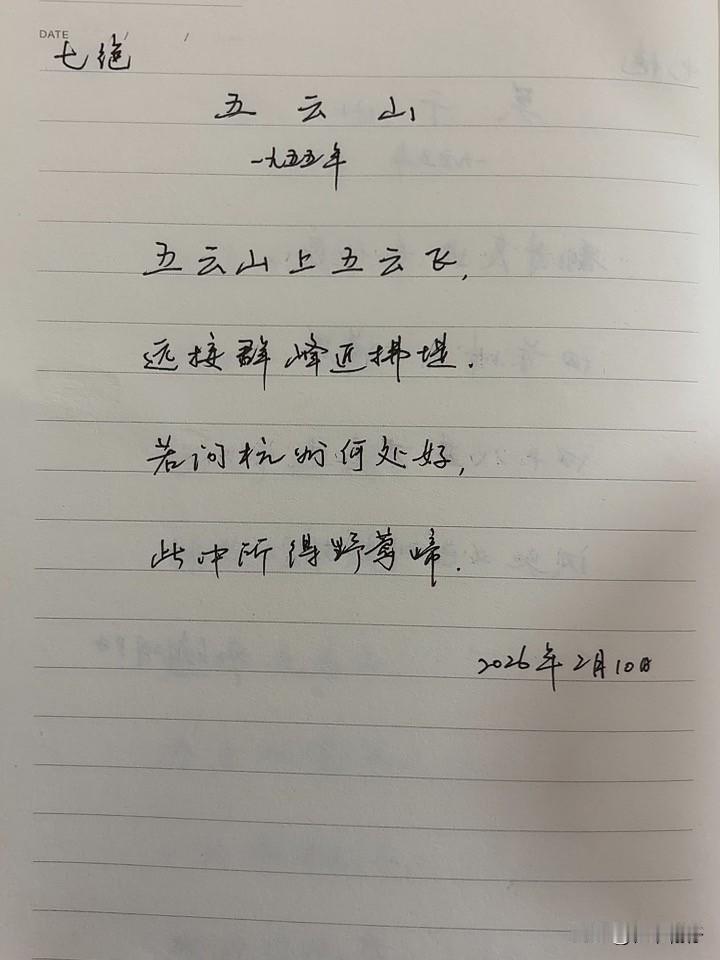 DATE / /
七绝
五云山
一九五五年
五云山上五云飞,
远接群峰近拂堤.
若问杭州何处好,
此中所得野莺啼.
2026年2月10日